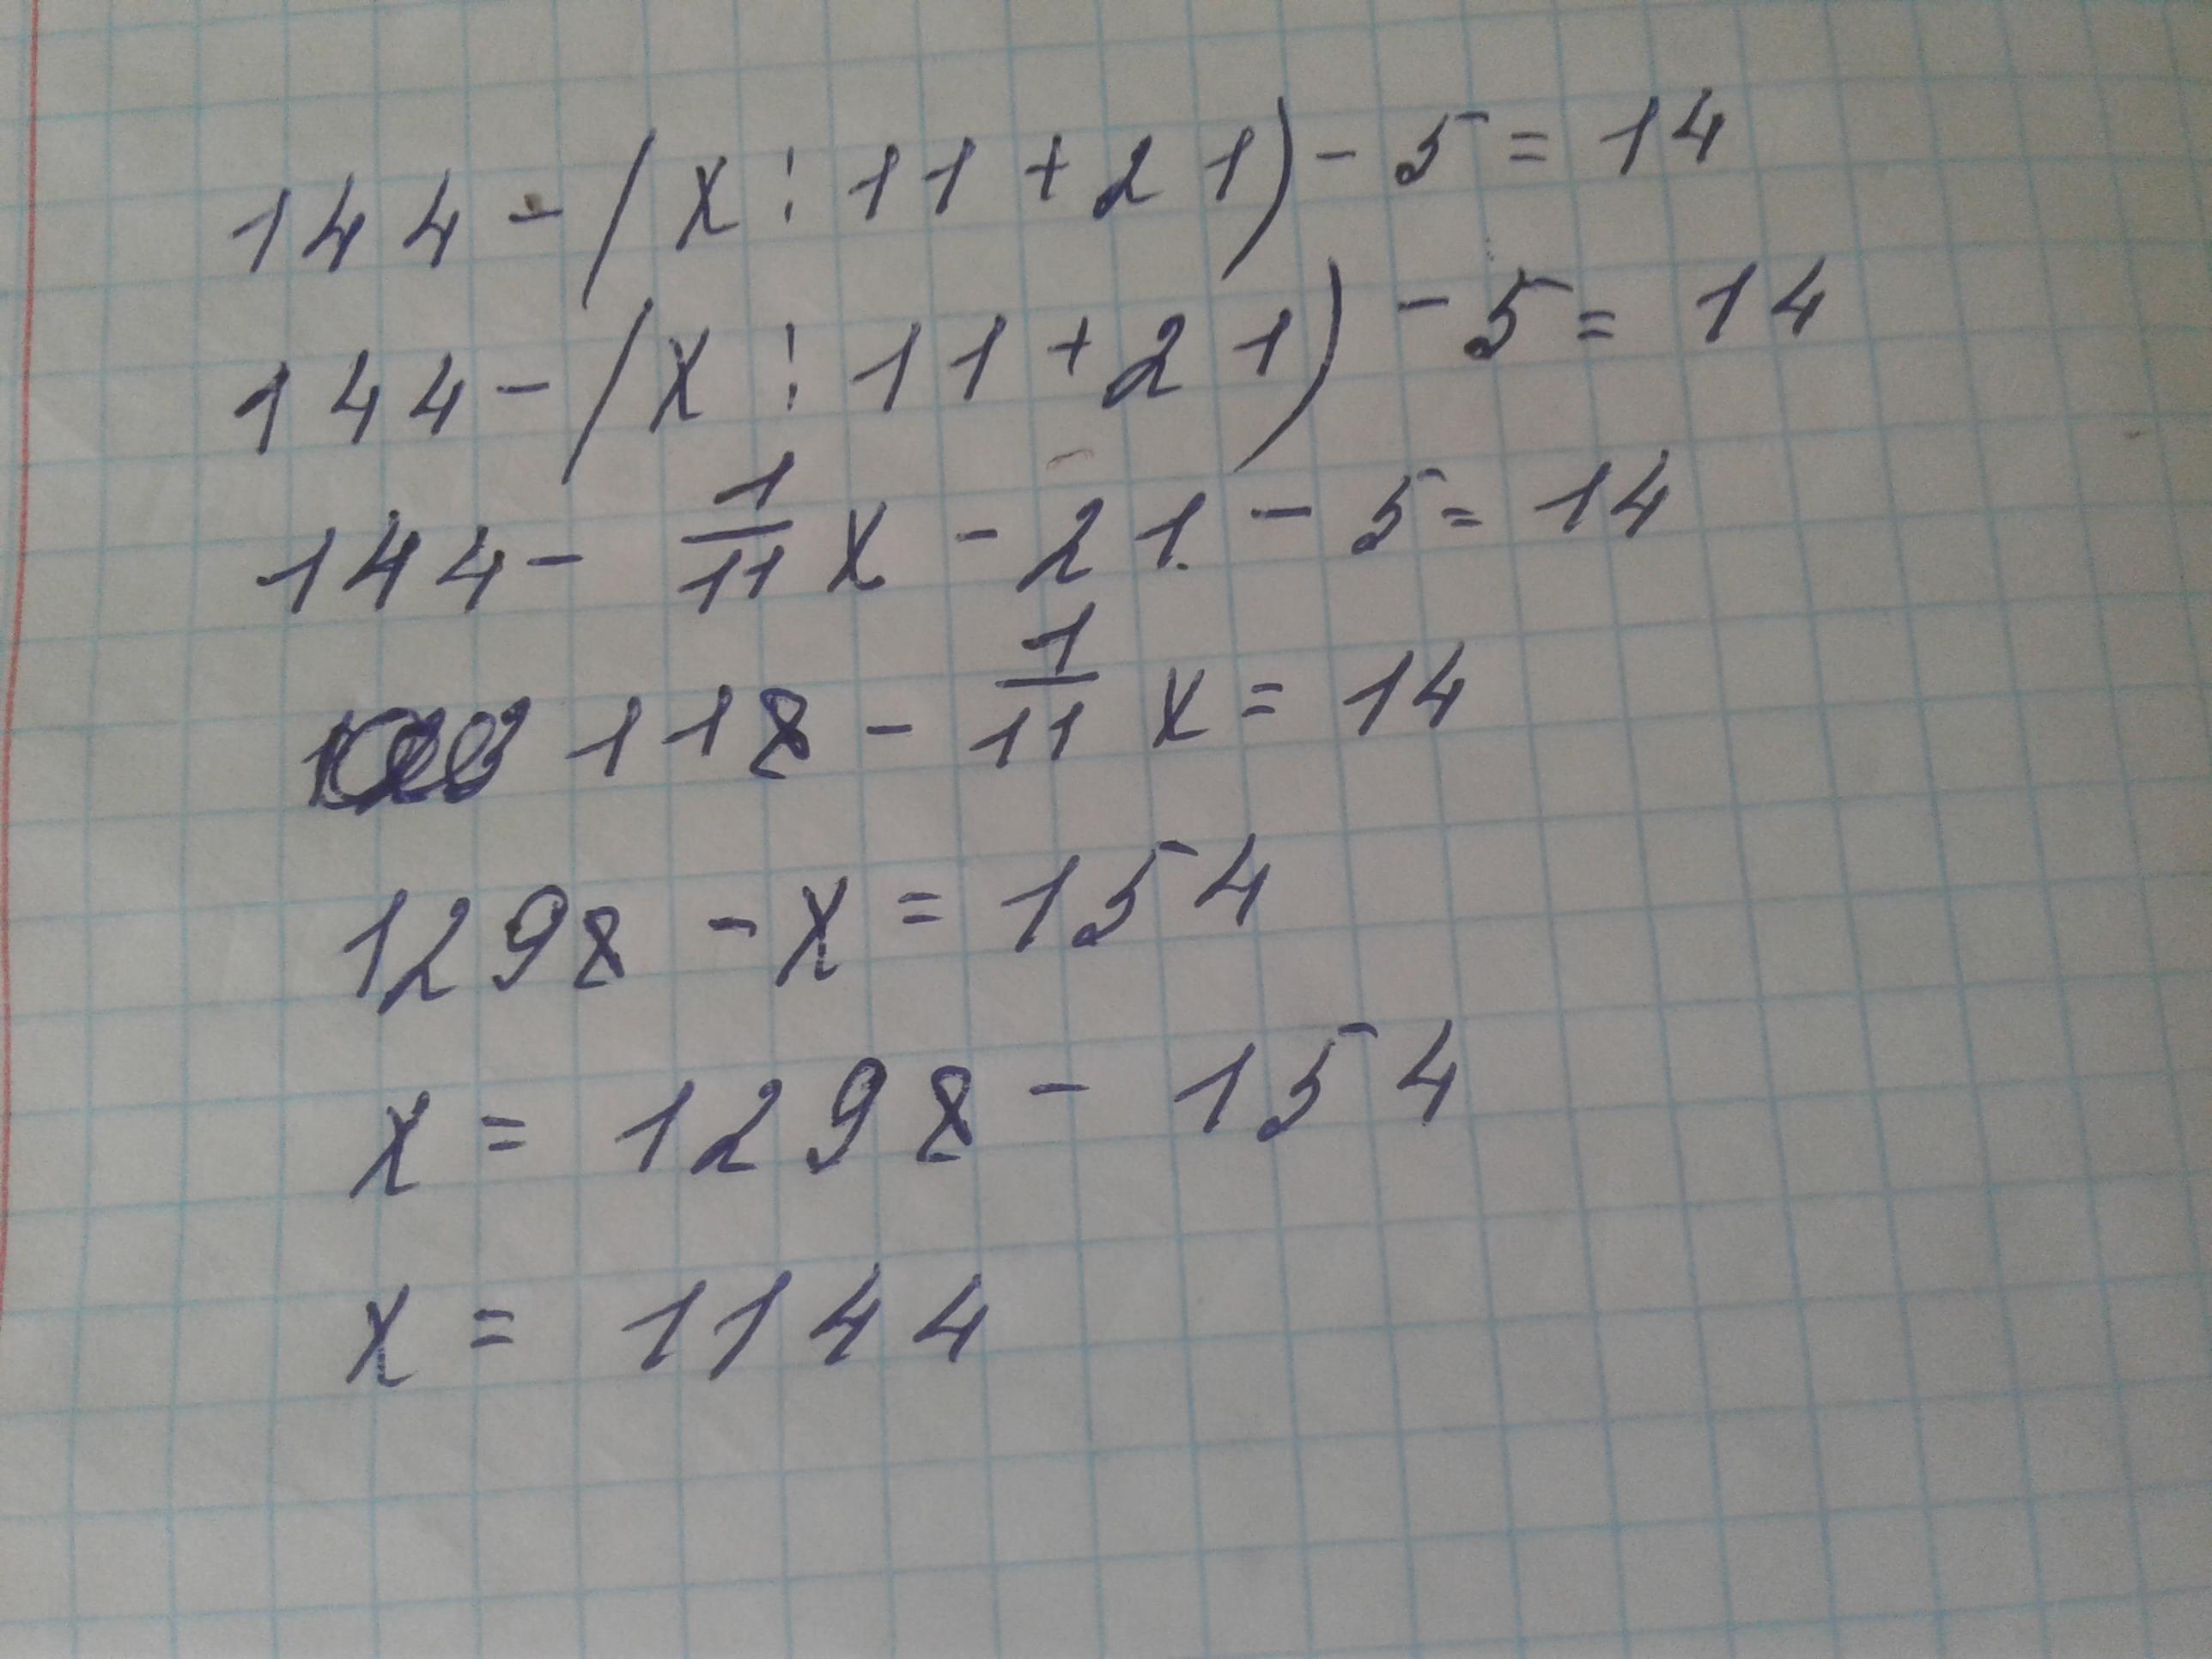 144 - (x : 11 + 21) - 5 = 14
144 - (x : 11 + 21) - 5 = 14
144 - 1/11 x - 21 - 5 = 14
118 - 1/11 x = 14
1298 - x = 154
x = 1298 - 154
x = 1144